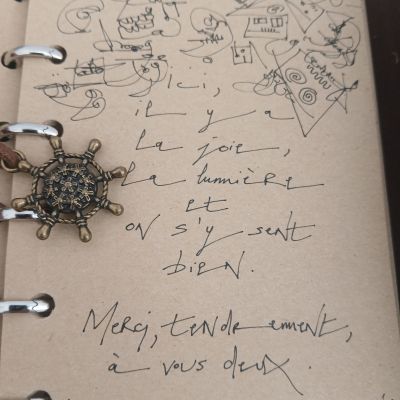 Ici,
il y a
la joie,
la lummière
et
on s'y sent
bien.
Merci, tendrement,
à vous deux.